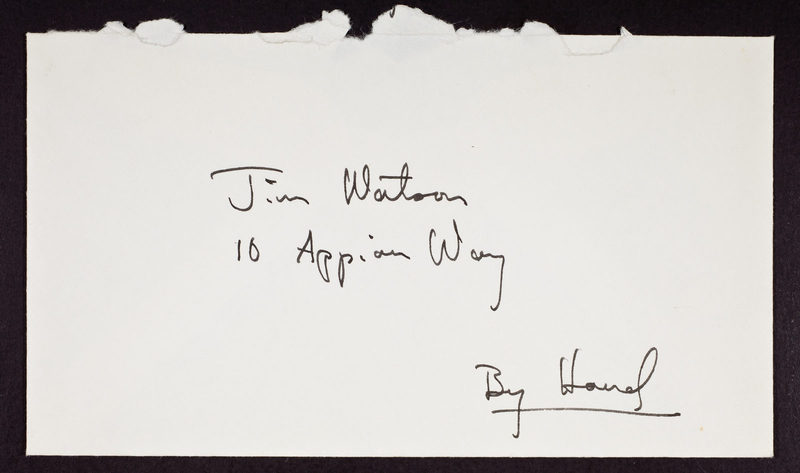 Jim Watson
10 Appian Way
By Hand